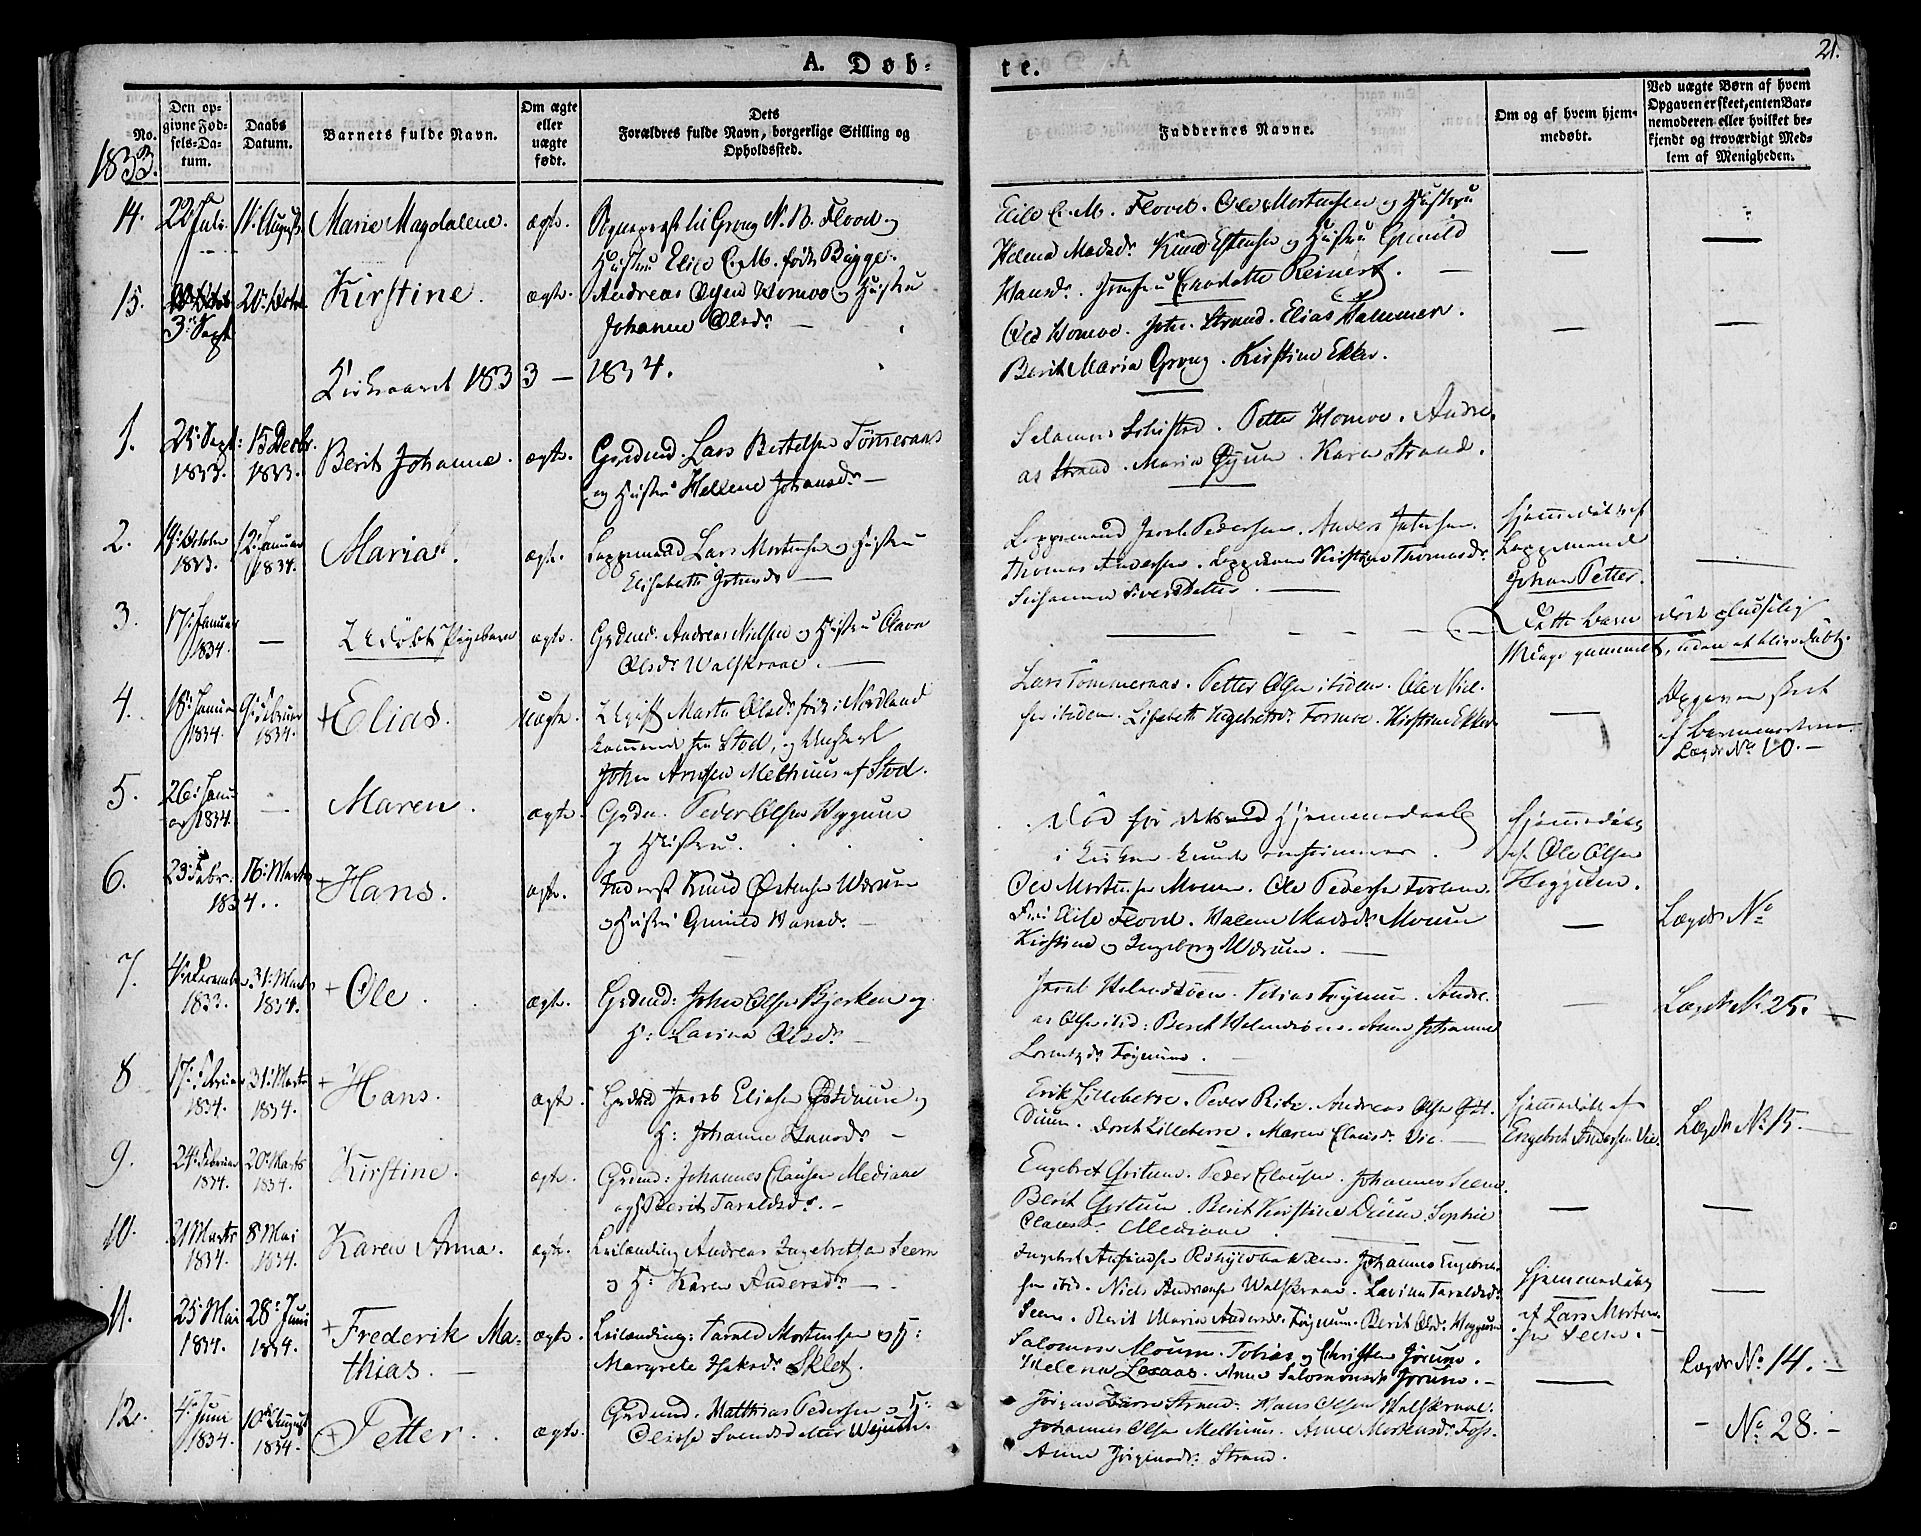 A. Døbte.
21.
No.
Den opgivne Fødsels-Datum.
Daabs Datum.
Barnets fulde Navn.
Om ægte eller uægte født.
Dets Forældres fulde Navn, borgerlige Stilling og Opholdssted.
Faddernes Navne.
Om og af hvem hjemmedøbt.
Ved uægte Børn af hvem Opgaven er skeet, enten Barnemoderen eller hvilket bekjendt og troværdigt Medlem af Menigheden.
1833.
14. 22 Juli 11. August Marie Magdalene. ægte. Sognepræst til Grong N. B. Flood og
Hustru Elise C. M. født Bugge.
Elise C. M. Flood. Ole Mortensen og Hustru
Helena Madsdr. Knud Estensen og Hustru Gunild
Hansdr. Jomfru Charlotte Reinert. —
15. 3. Sept 20. Octor Kirstine. ægte. Andreas Olsen Homoe og Hustru
Johanne Olsdr. —
Ole Homoe. John Strand. Elias Hammer.
Berit Maria Grong. Kirstine Ekker.
Kirkeaaret 1833 — 1834.
1. 25. Sept: 1833. 15 Decbr. 1833. Berit Johanna. ægte. Grdmd. Lars Bertelsen Tømmeraas
og Hustru Hellene Johansdr. —
Salamon Schistad. Petter Homoe. Andre-
as Strand. Maria Øyum. Karen Strand.
2. 19. October 1833. 12. Januar 1834. Maria. ægte. Lappemand Lars Mortensen og Hustru
Elisabeth Johnsdr. —
Lappemand Jacob Pedersen. Anders
Thomas Andersen. Kirstine Thomasdr.
Susanna Siversdatter. —
hjemmedøbt af
Lappemand
Johan Petter.
3. 17. Januar 1834. — Udøbt Pigebarn ægte. Grdmd. Andreas Nielsen og Hustru Olava
Olsdr. Walskraae. —
Dette Barn døde pludselig
gammelt, uden at blive døbt.
4. 18. Januar 1834. 9. Februar 1834. + Elias. uægte. Ugift Martha Olsdr. født i Nordland
kommende fra Stod, og Ungkarl
John Arnsen Melhuus af Stod.
Lars Tömmeraas. Petter Olsen itiden. Ole Niel-
sen itiden. Lisabeth Ingebretsdr. Formoe. Kirstine Ekker
Opgaven skeet
af Barnemoderen.
Lægds No. 10. —
5. 26. Janu- ar 1834. — Maren. ægte. Grdm. Peder Olsen Heggum
og Hustru.
Død før dets Hjemmedaab
i Kirken kunde
hjemmedøbt
af Ole Olsen
Heggum.
6. 23. Febr. 16. Marts 1834. + Hans. ægte. Inderst Knud Østensen Værum
og Hustru Gunild Hansdr. —
Ole Mortensen Moum. Ole Pedersen
Fru Elise Flood. Halene Madsdr. Moum
Kirstine og Ingeborg Værum. —
Lægds No
7. 4. December 1833. 31. Marts 1834. + Ole. ægte. Grdmd: John Olsen Bjerken og
H: Lavina Olsdr. —
Jacob Tobias Andre-
as Olsen itid: Berit Anne Johanna
Lorentzdr.
Lægds No 25. —
8 17. Februar 1834. 31. Marts 1834. + Hans. ægte. Grdmd Jacob Eliasen Østduun og
H: Johanne Hansdr. —
Erik Lilleberre. Peder Rise. Andreas Olsen Øst-
Duun. Dorit Lilleberre. Maren Clausdr. Vie. —
hjemmedøbt af
Engebret Andersen Vie.
Lægds No 15. —
9. 24. Februar 1834. 20. Marts 1834. Kirstine. ægte. Grdmd: Johannes Clausen Mediaae
og H Berit Taraldsdr. —
Engebret Gartum. Peder Clausen. Johannes Seem.
Berit Gartum. Berit Kirstine Duun. Sophie
Clausdr. Mediaae.
10. 21 Marts 1834. 8. Mai 1834. Karen Anna. ægte. Leilænding Andreas Ingebretsen Seem
og H: Karen Andersdr. —
Johannes Engebret-
sen itid. Niels Andreasen Walskraae. Lavina Taraldsdr.
Seem. Berit Maria Andersdr. Berit Olsdr. Heggum
hjemmedøbt
af Lars Morten-
sen Seem. —
11. 25 Mai 1834. 28. Juni 1834. + Frederik Ma-
thias. — ægte. Leilænding: Tarald Mortensen og H:
Margrete Isaksdr. Sklet.
Salomon Moum. Tobias og Christen Jørum.
Helena Lexaas. Anne Salomonsdr. Jørum. —
Lægds No. 14. —
12. 4. Juni 1834. 10. August 1834. + Petter. ægte. Grdmd. Matthias Pedersen og H:
Olisse Svendsdatter
Jørgen Strand. Hans Olsen Walskraae.
Johannes Olsen Melhuus. Anne Mortensdr. Foss.
Anne Jørgensdr. Strand.
— No. 28. —